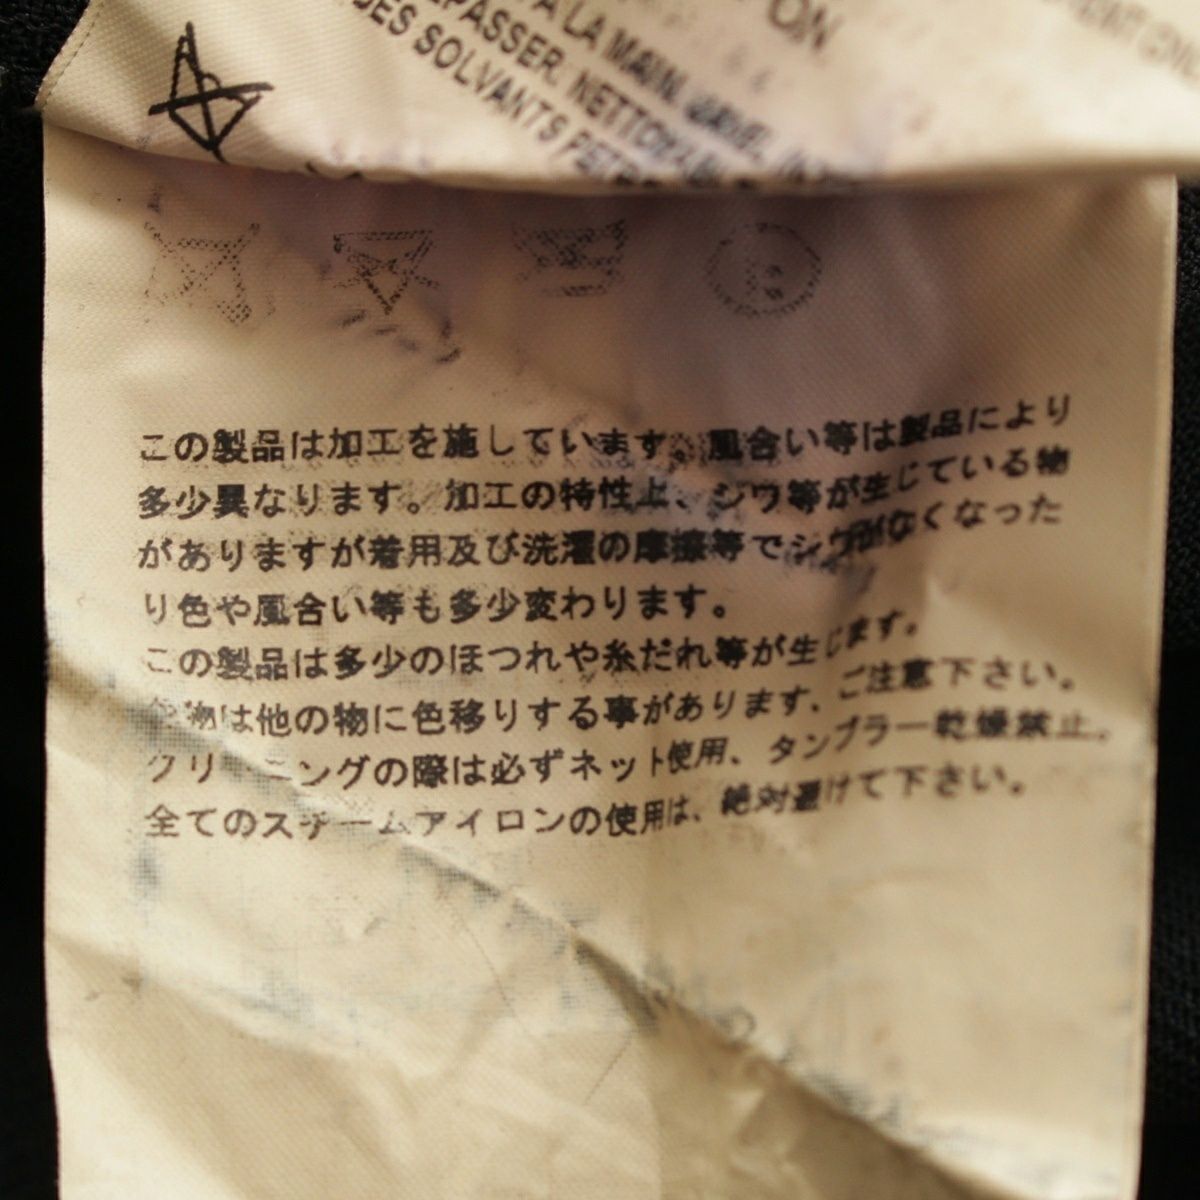 ON.
À LA MAIN.
REPASSER. NETTOY
DES SOLVANTS
この製品は加工を施しています。風合い等は製品により
多少異なります。加工の特性上、シワ等が生じている物
がありますが着用及び洗濯の摩擦等でシワがなくなった
り色や風合い等も多少変わります。
この製品は多少のほつれや糸だれ等が生じます。
色物は他の物に色移りする事があります、ご注意下さい。
クリーニングの際は必ずネット使用、タンブラー乾燥禁止。
全てのスチームアイロンの使用は、絶対避けて下さい。